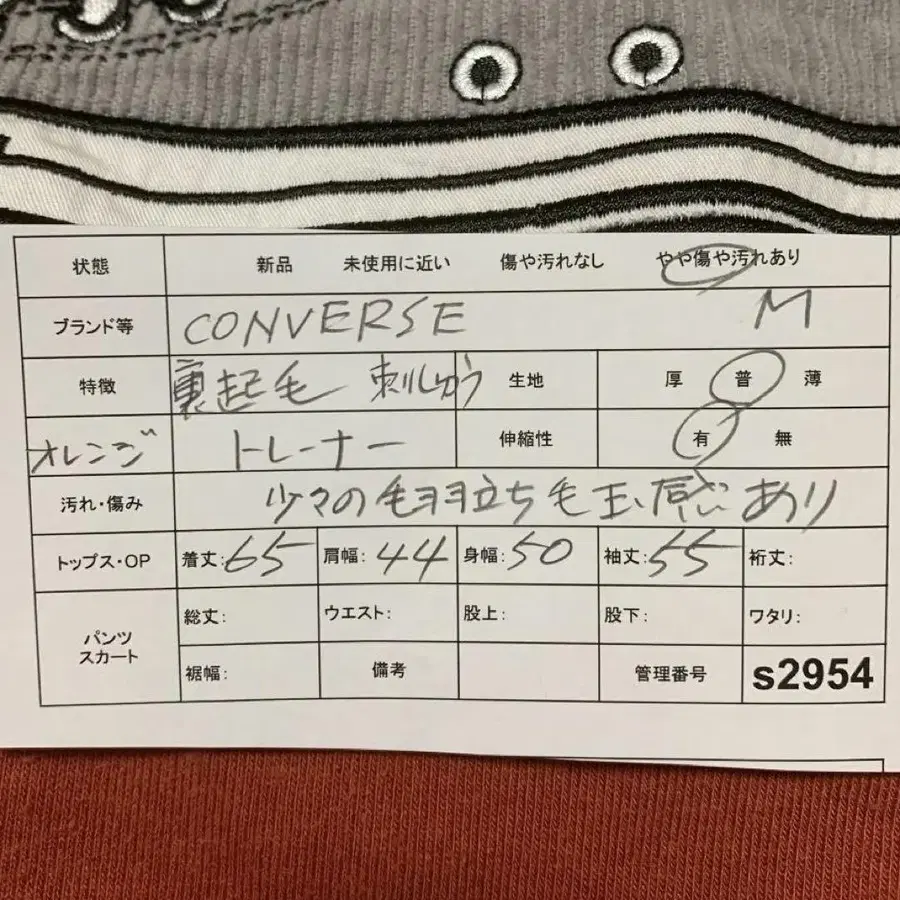 状態 新品 未使用に近い 傷や汚れなし やや傷や汚れあり
ブランド等 CONVERSE M
特徴 裏起毛 刺しゅう 生地 厚 普 薄
オレンジ トレーナー 伸縮性 有 無
汚れ・傷み 少々の毛羽立ち毛玉感あり
トップス・OP 着丈:65 肩幅:44 身幅:50 袖丈:55 裄丈:
パンツ スカート 総丈: ウエスト: 股上: 股下: ワタリ:
裾幅: 備考 管理番号 s2954